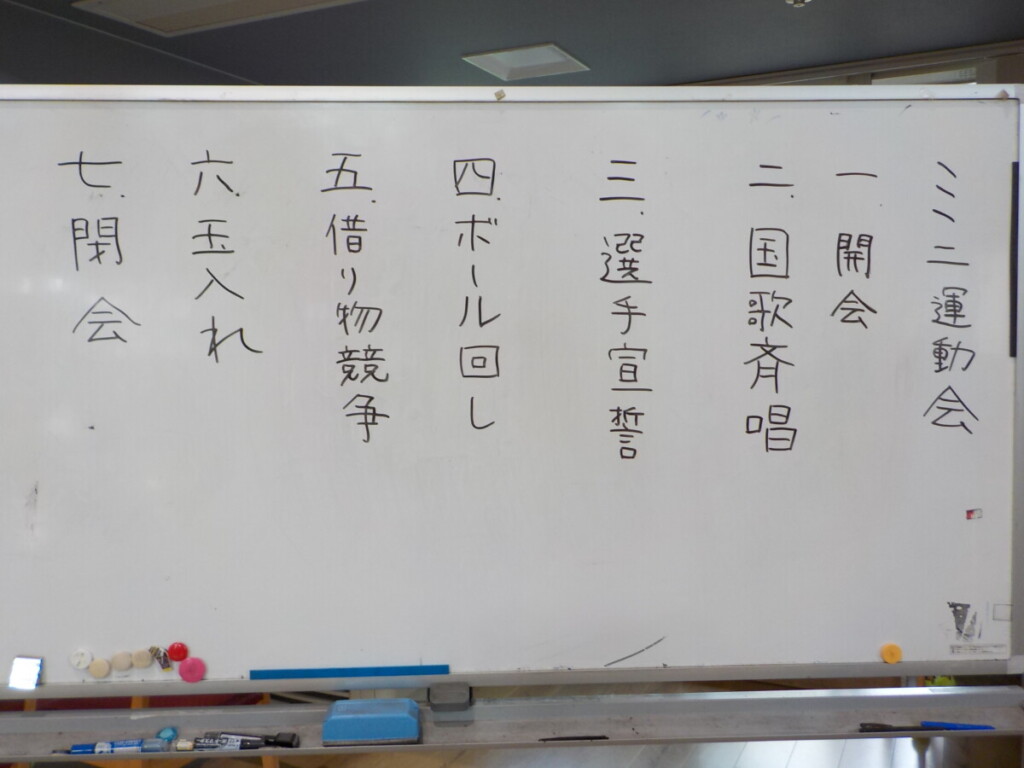 ミニ運動会
一.開会
二.国歌斉唱
三.選手宣誓
四.ボール回し
五.借り物競争
六.玉入れ
七.閉会